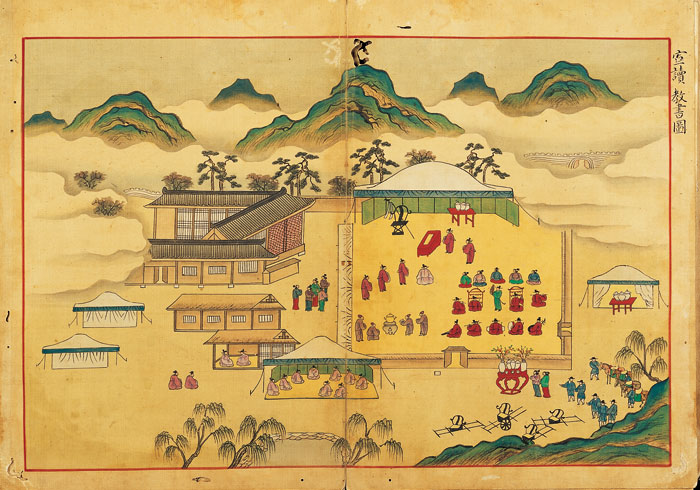 宣讀 教書圖